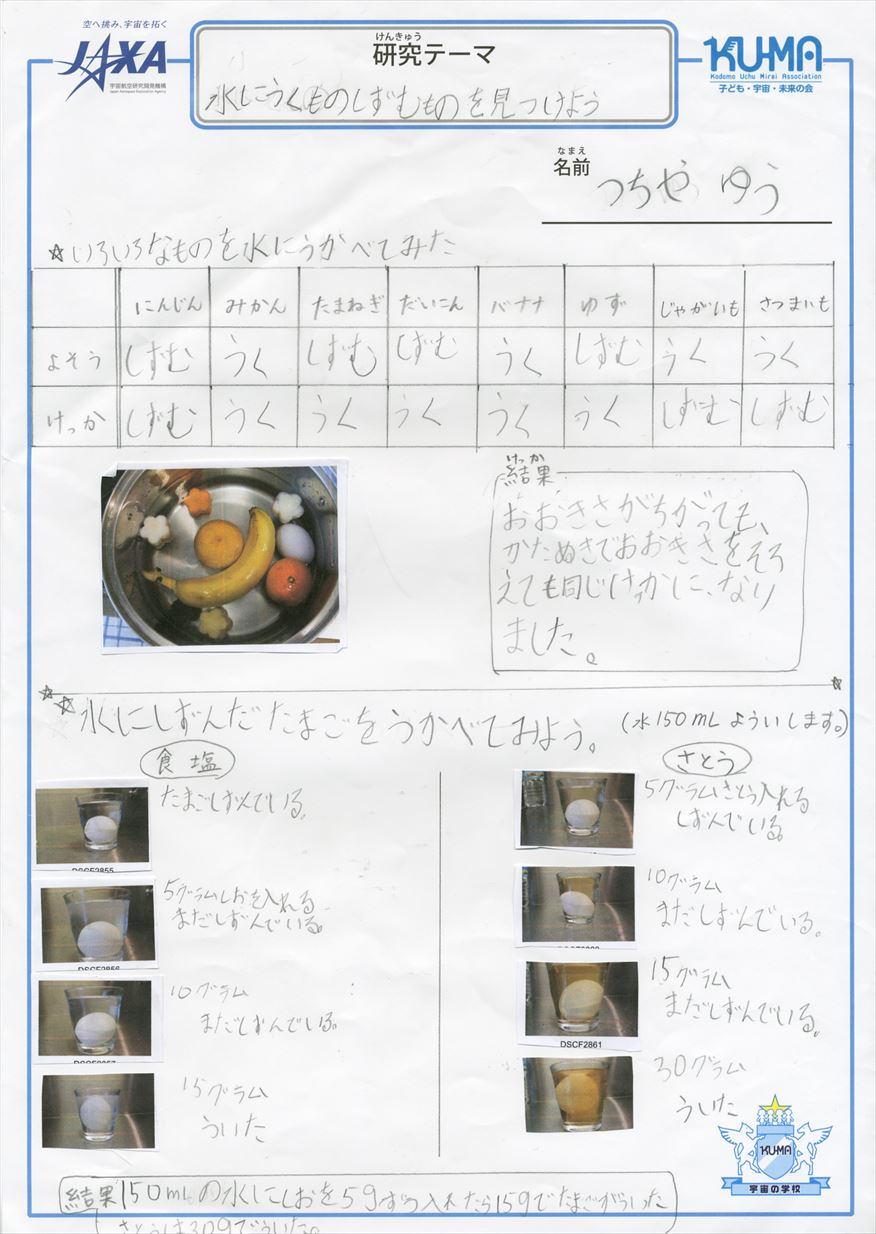 空へ挑み、宇宙を拓く
JAXA
宇宙航空研究開発機構
Japan Aerospace Exploration Agency
けんきゅう
研究テーマ
水にうくものしずむものを見つけよう
KU-MA
Kodomo Uchu Mirai Association
子ども・宇宙・未来の会
なまえ
名前 つちや ゆう
☆いろいろなものを水にうかべてみた
にんじん みかん たまねぎ だいこん バナナ ゆず じゃがいも さつまいも
よそう しずむ うく しずむ しずむ うく しずむ うく うく
けっか しずむ うく うく うく うく うく しずむ しずむ
けっか
結果
おおきさがちがっても、
かたぬきでおおきさをそろ
えても同じけっかに、なり
ました。
☆水にしずんだたまごをうかべてみよう。(水150mLよういします。)
食塩
たまごしずんでいる。
DSCF2855
5グラムしおを入れる
まだしずんでいる。
DSCF2856
10グラム
まだしずんでいる。
DSCF2857
15グラム
ういた
さとう
5グラムさとう入れる
しずんでいる。
10グラム
まだしずんでいる。
15グラム
まだしずんでいる。
DSCF2861
30グラム
ういた
KU-MA
宇宙の学校
結果 150mLの水にしおを5gずつ入れたら15gでたまごがういた
さとうは30gでういた。